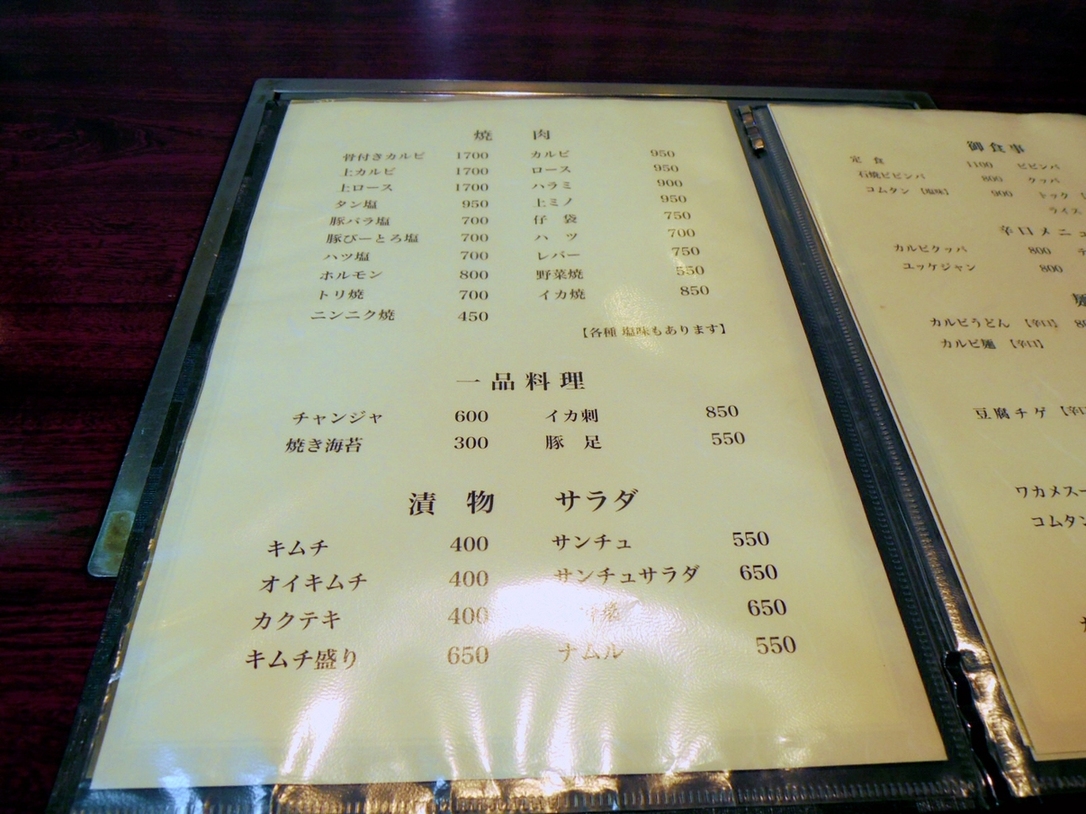 焼 肉
骨付きカルビ 1700 カルビ 950
上カルビ 1700 ロース 950
上ロース 1700 ハラミ 900
タン塩 950 上ミノ 950
豚バラ塩 700 仔 袋 750
豚びーとろ塩 700 ハ ツ 700
ハツ塩 700 レバー 750
ホルモン 800 野菜焼 550
トリ焼 700 イカ焼 850
ニンニク焼 450
【各種 塩味もあります】
一品料理
チャンジャ 600 イカ刺 850
焼き海苔 300 豚 足 550
漬 物 サラダ
キムチ 400 サンチュ 550
オイキムチ 400 サンチュサラダ 650
カクテキ 400 650
キムチ盛り 650 ナムル 550
御食事
定 食 1100 ビビンバ
石焼ビビンバ 800 クッパ
コムタン【塩味】 900 トック
ライス
辛口メニュ
カルビクッパ 800
ユッケジャン 800
カルビうどん【辛口】
カルビ麺【辛口】
豆腐チゲ【辛口
ワカメスー
コムタン